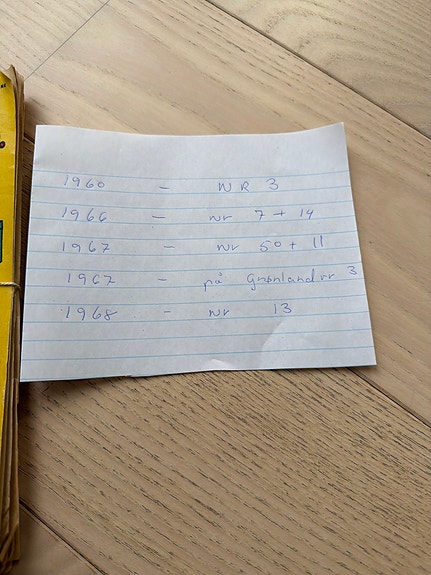 1960 - NR 3
1966 - nr 7 + 14
1967 - nr 50 + 11
1967 - på Grønland nr 3
1968 - nr 13